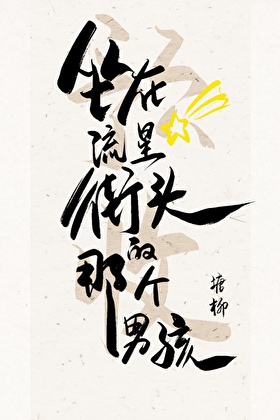 坐在
流星
街头
的
那个
男孩
塘柳